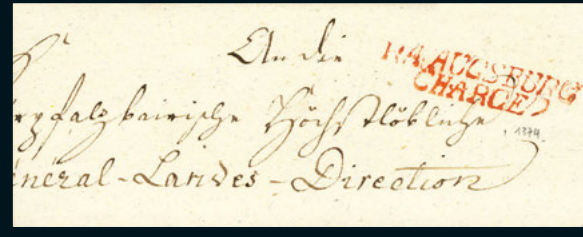 An die
R.4.AUGSBURG
CHARGE
rpfalzbairische Höchstlöbliche
1379.
eneral-Landes-Direction